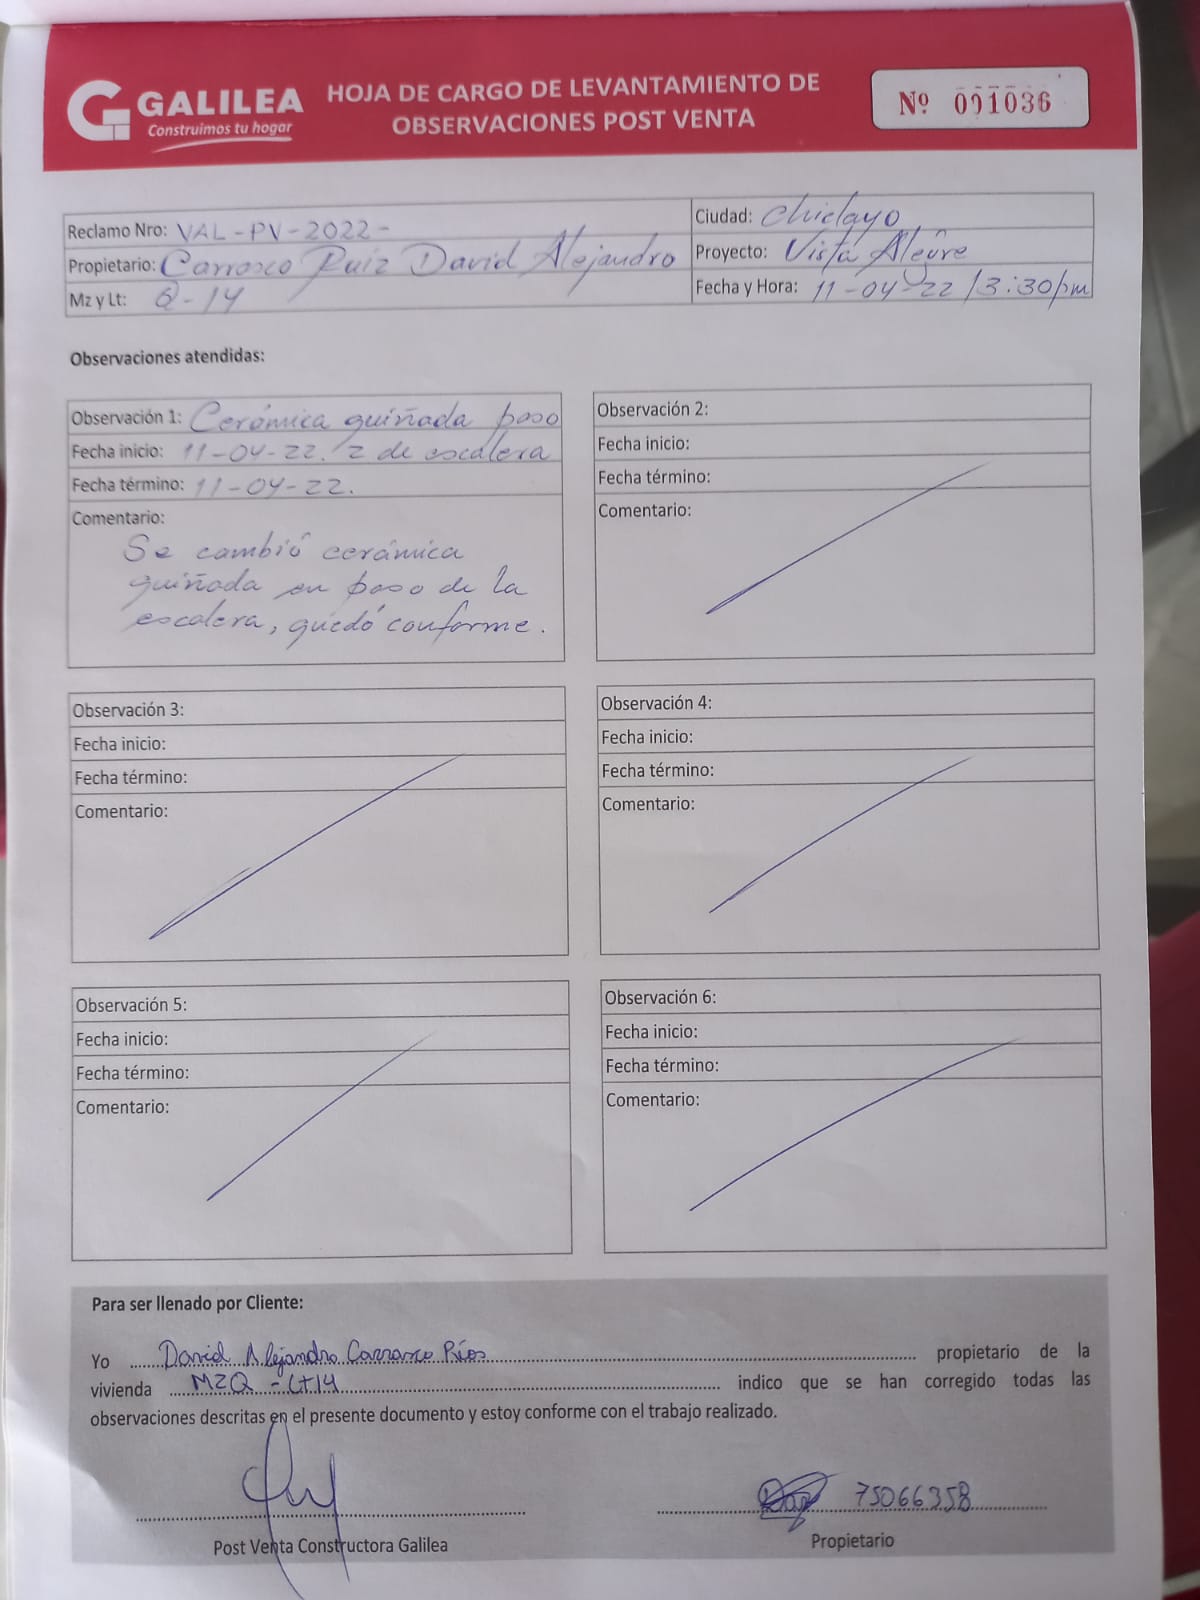 GALILEA
Construimos tu hogar
HOJA DE CARGO DE LEVANTAMIENTO DE
OBSERVACIONES POST VENTA
Nº 001036
Reclamo Nro: VAL-PV-2022-
Propietario: Carrasco Ruiz David Alejandro
Mz y Lt: Q-14
Ciudad: Chiclayo
Proyecto: Vista Alegre
Fecha y Hora: 11-04-22 / 3:30pm
Observaciones atendidas:
Observación 1: Cerámica guiñada paso
Fecha inicio: 11-04-22. 2 de escalera
Fecha término: 11-04-22.
Comentario:
Se cambió cerámica
guiñada en paso de la
escalera, quedó conforme.
Observación 2:
Fecha inicio:
Fecha término:
Comentario:
Observación 3:
Fecha inicio:
Fecha término:
Comentario:
Observación 4:
Fecha inicio:
Fecha término:
Comentario:
Observación 5:
Fecha inicio:
Fecha término:
Comentario:
Observación 6:
Fecha inicio:
Fecha término:
Comentario:
Para ser llenado por Cliente:
Yo David Alejandro Carrasco Ríos propietario de la
vivienda MZQ - Lt14 indico que se han corregido todas las
observaciones descritas en el presente documento y estoy conforme con el trabajo realizado.
75066358
Post Venta Constructora Galilea
Propietario